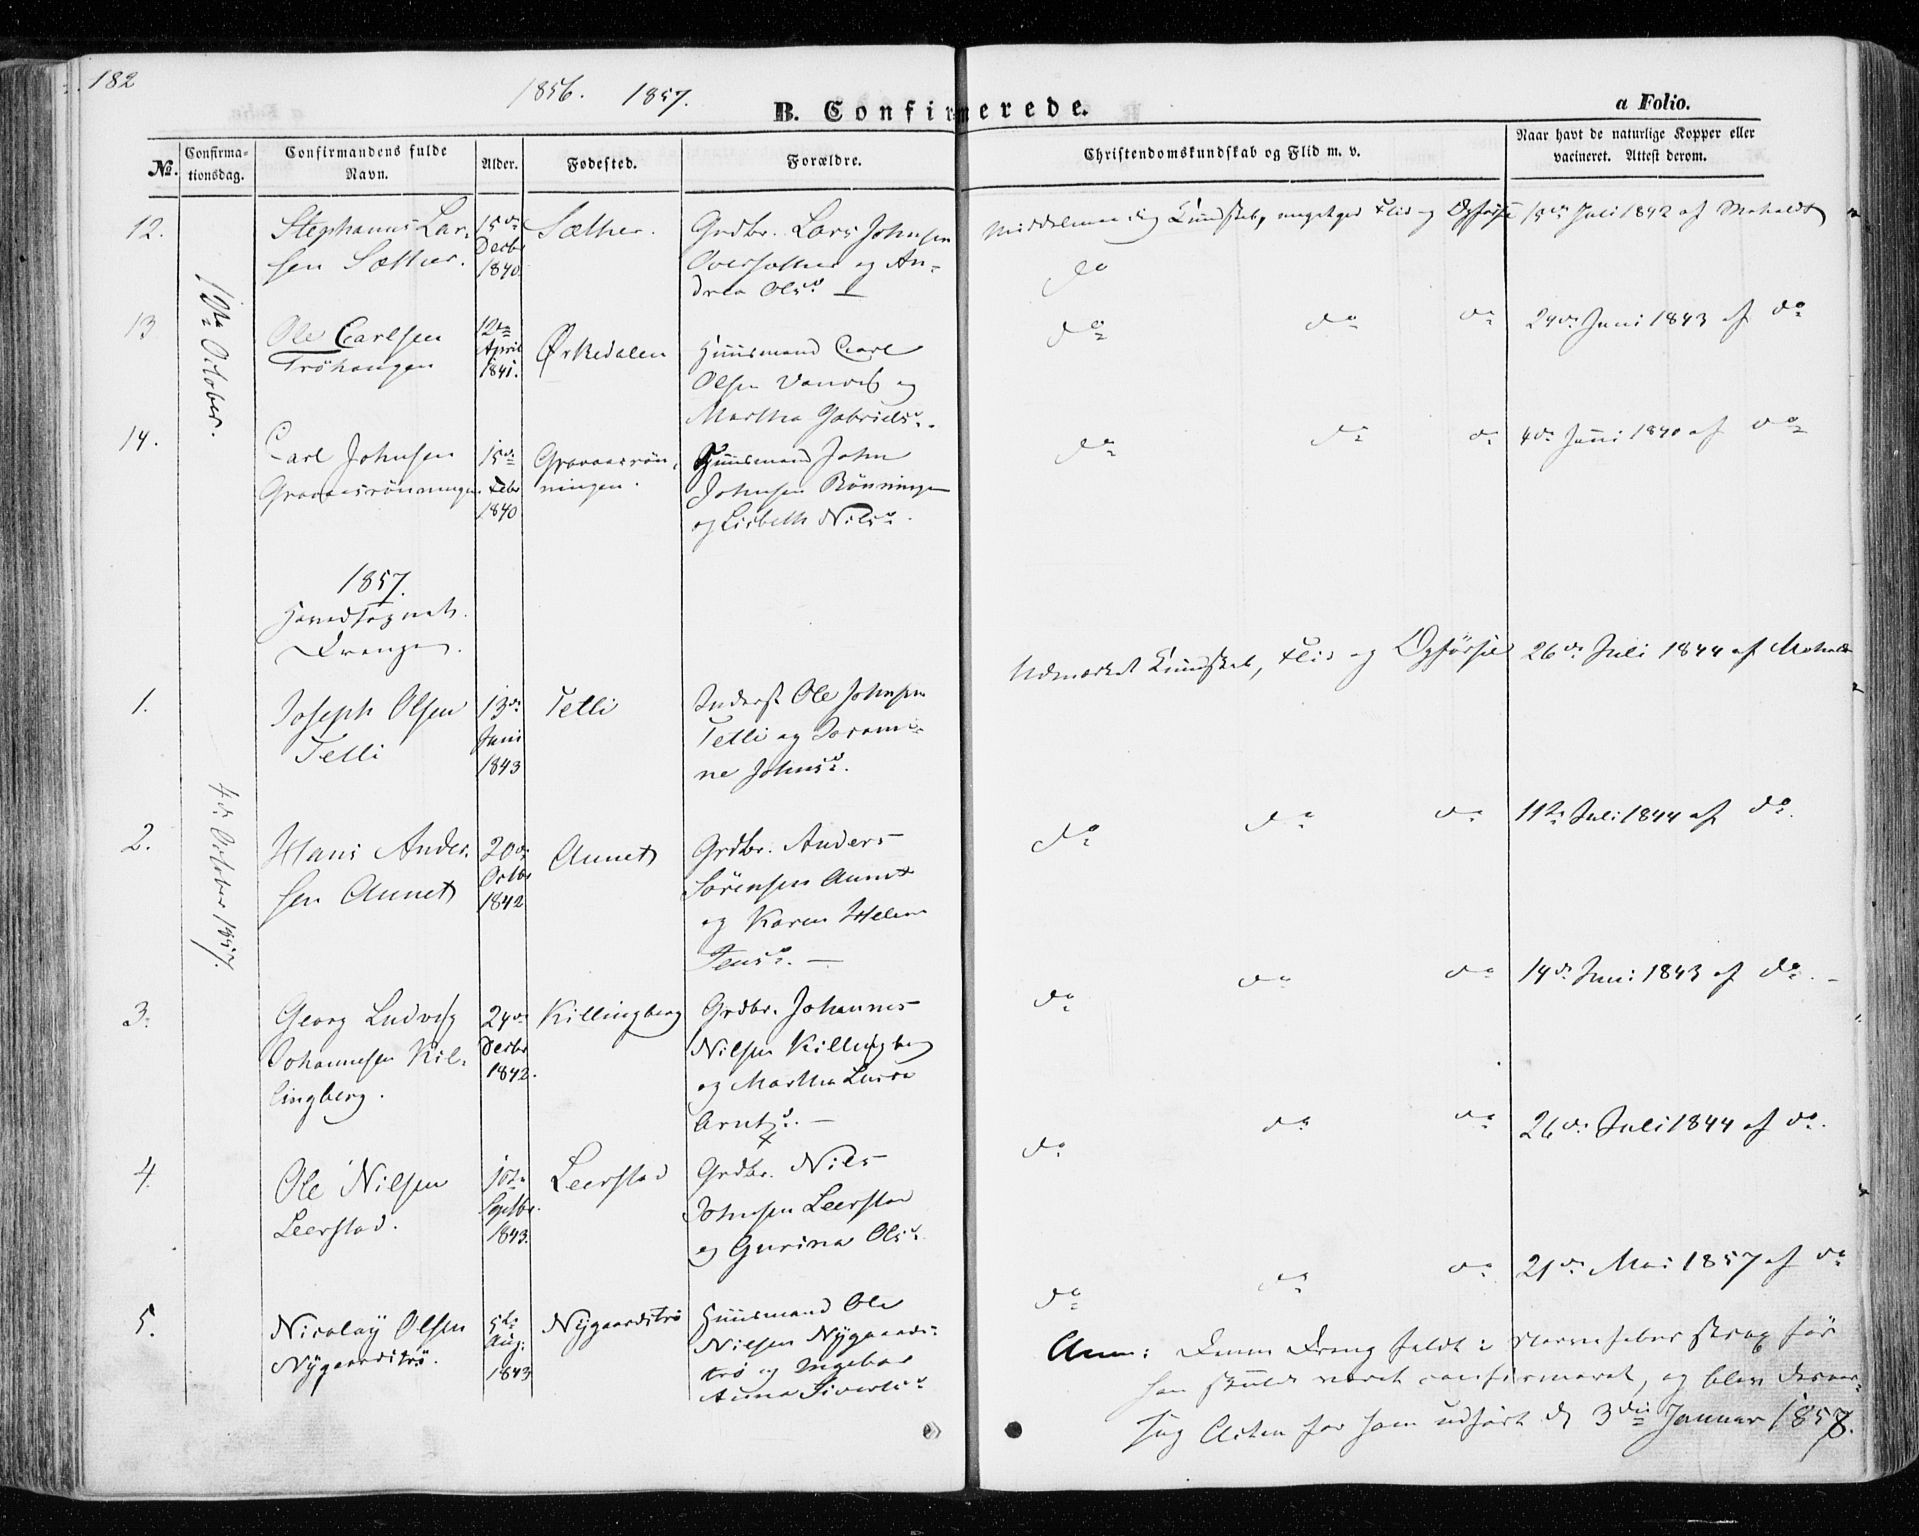 182
1856. 1857.
B. Confirmerede.
a Folio.
No. Confirma-tionsdag. Confirmandens fulde Navn. Alder. Fødested. Forældre. Christendomskundskab og Flid m. v. Naar havt de naturlige Kopper eller vacineret. Attest derom.
12.
Stephanus Lar-
sen Sæther.
15de
Decbr
1840.
Sæther.
Grdbr. Lars Johnsen
Oversæther og An-
drea Olsd.
Kundskab, Flid og Opførsel
do
18de Juli 1842 af Moholdt
10de October.
13
Ole Carlsen
Tröhaugen
12te
April
1841.
Ørkedalen
Huusmand Carl
Olsen og
Martha Gabrielsd.
do do do
24de Juni 1843 af do
14.
Carl Johnsen
Graaensrönningen
15de
Febr
1840
Graaensrön-
ningen.
Huusmand John
Johnsen Rönningen
og Lisbeth Nilsd.
do do do
4de Juni 1840 af do
1857.
Hovedsognets
Drenge.
1.
Joseph Olsen
Telli
13de
Juni
1843
Telli
Inderst Ole Johnsen
Telli og
ne Johnsd.
Udmærket Kundskab, Flid og Opførsel
26de Juli 1844 af Moholdt
4de October 1857.
2.
Hans Ander-
sen Aunet
20de
Octbr
1842
Aunet
Grdbr. Anders
Sörensen Aunet
og Karen Helena
Jensd.
do do do
11te Juli 1844 af do.
3.
Georg Ludvig
Johannesen Kil-
lingberg.
24de
Decbr
1842.
Killingberg
Grdbr. Johannes
Nilsen Killingberg
og Martha Lucia
Arntsd.
do do do
14de Juni 1843 af do.
4.
Ole Nilsen
Leerstad.
10de
Septbr.
1843.
Leerstad
Grdbr. Nils
Johnsen Leerstad
og Gurina Olsd.
do do do
26de Juli 1844 af do.
5.
Nicolay Olsen
Nygaardstrø.
5te
Aug.
1843
Nygaardstrø
Huusmand Ole
Nilsen Nygaards-
trø og Ingebor
Anna Sivertsd.
do do do
21de Mai 1857 af do
Anm: Denne Dreng faldt i Nervefeber strax før
han skulde været confirmeret, og blev
Acten for ham udført d 3die Januar 1858.